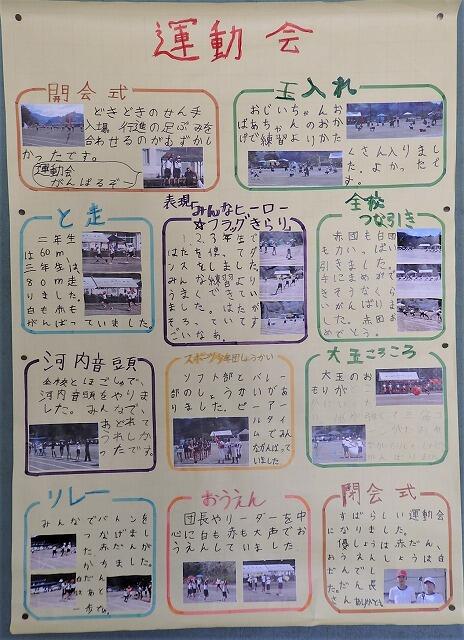 運動会
開会式
どきどきのせん手
入場 行進の足ぶみを
合わせるのがむずかし
かったです。
運動会
がんばるぞー
玉入れ
おじいちゃんお
ばあちゃんのお
げで練習よりかた
くさん入りまし
た。よかったで
す。
と走
二年生
は60m
三年生は、
80m走
りました。
白も赤も
がんばっていました。
表現 みんなヒーロー
☆フラッグきらり☆
1、2、3年生で
はたを使ってダ
ンスをしました。
みんな練習より
うまくできてい
ました。はたが
そろっていてす
ごいなあ。
全校
つな引き
赤団も白団
も力いっぱい
引きました。
おめでとう。
河内音頭
全校とほごしゃで、
河内音頭をやりま
した。みんなで
おどれて
うれしか
ったです。
スポーツ少年団しょうかい
ソフト部とバレー
部のしょうかいがあ
りました。ピーアー
ルタイ
ムでみん
ながんばって
いました
大玉ころころ
大玉のお
もりが
リレー
みんなでバトンを
つなげまし
た。赤だんが
かちました。
白だんは
あと
一歩でした。
おうえん
団長やリーダーを中
心に白も赤も大声でお
うえんしていました
閉会式
すばらしい運動会
になりました。
優しょうは赤だん、
おうえんしょうは白
だんでし
た。だん長
さん
ありがとう。